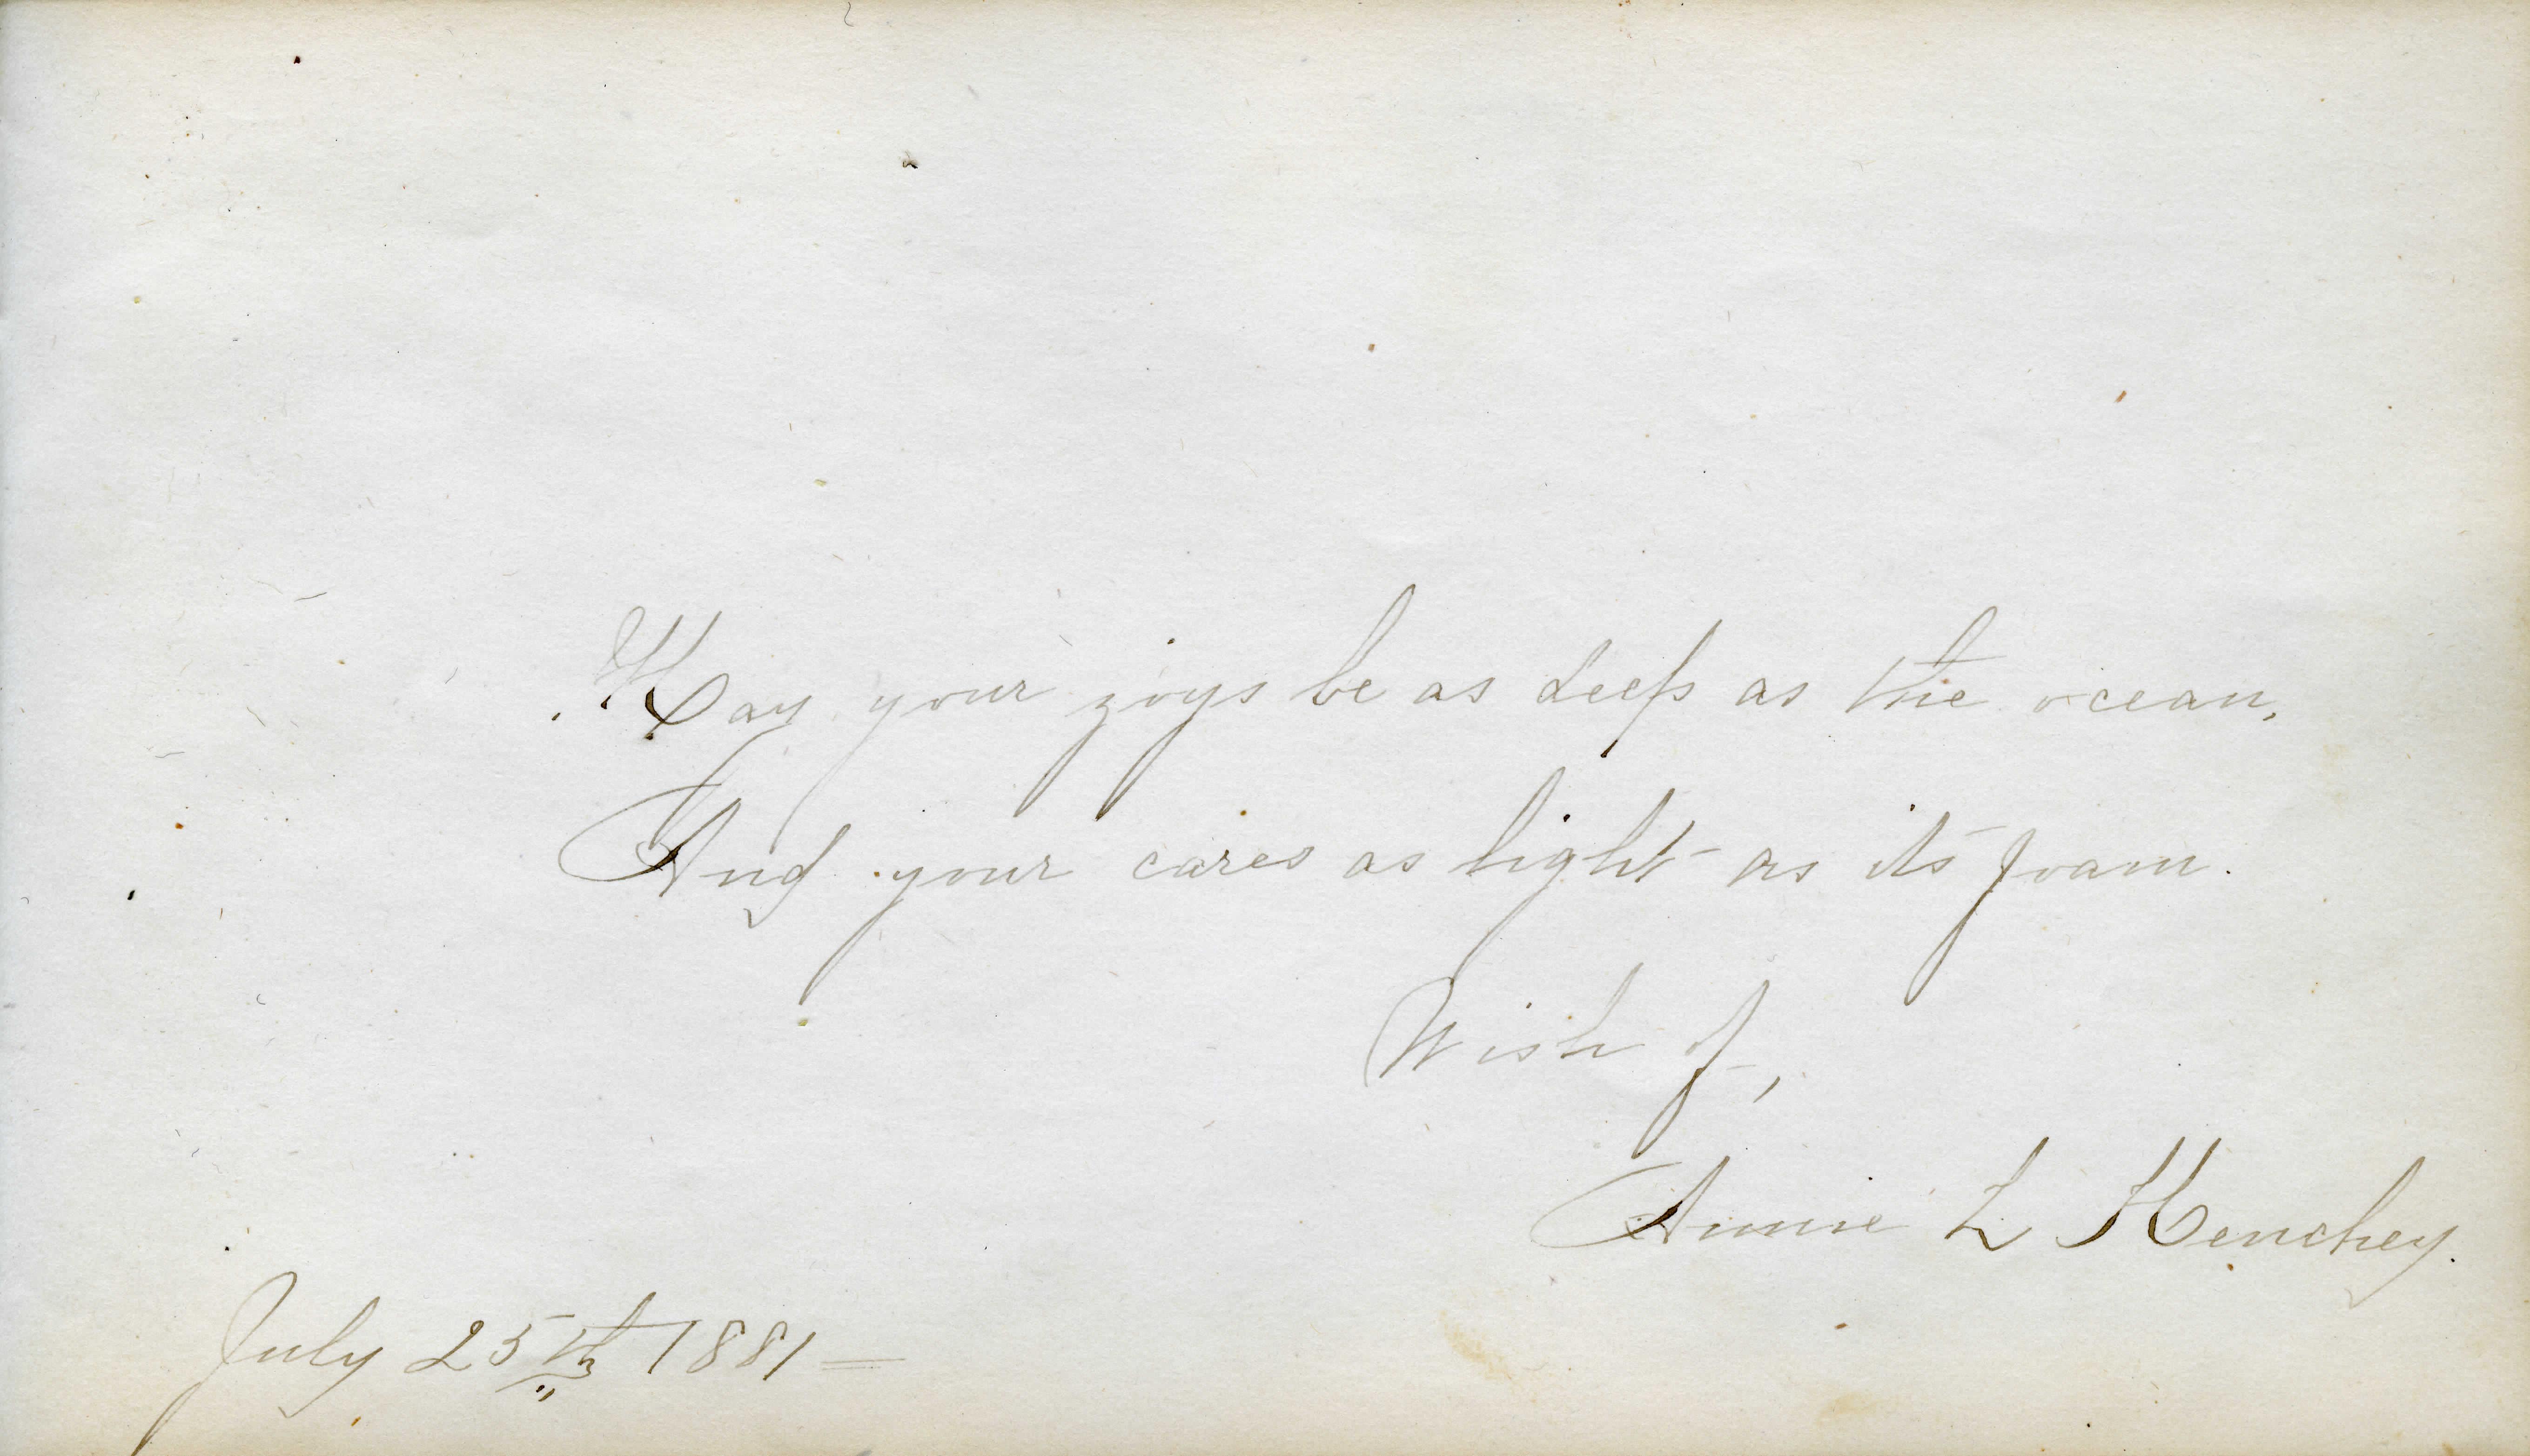 May your joys be as deep as the ocean,
And your cares as light as its foam.
Wish of,
Annie L Henchey.
July 25th 1881 =